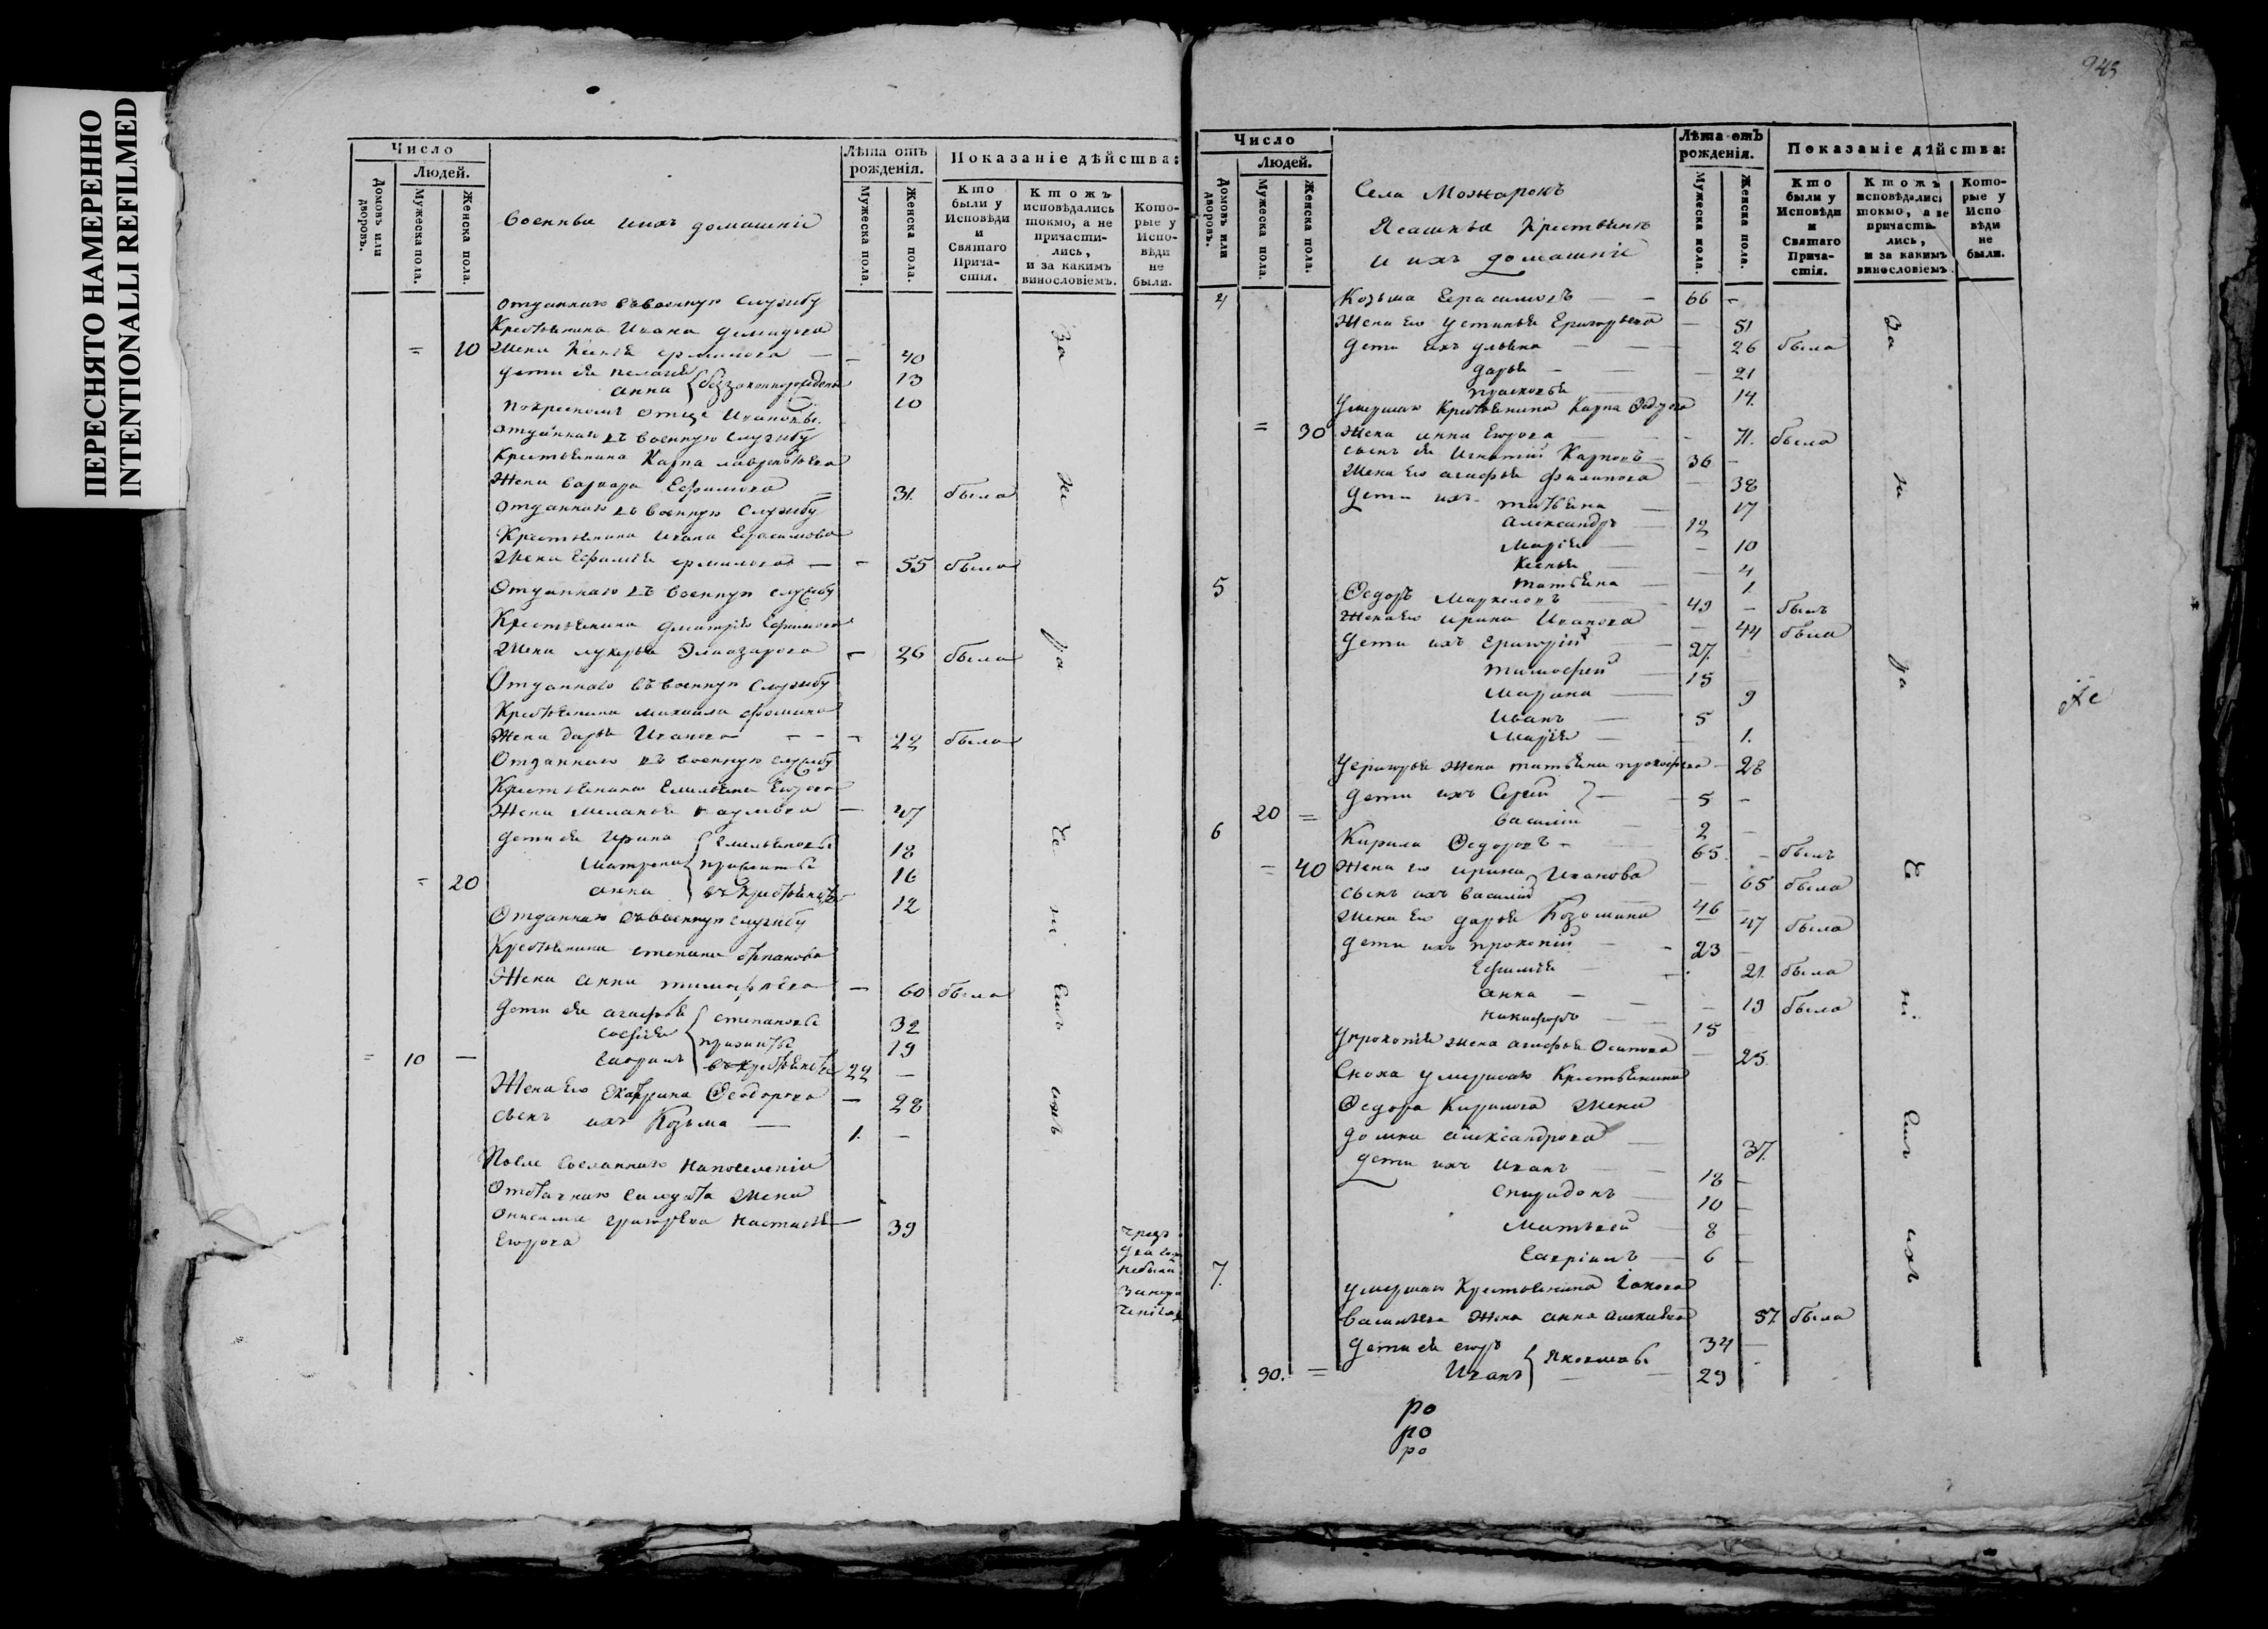 ПЕРЕСНЯТО НАМЕРЕННО
INTENTIONALLI REFILMED
Число
Людей.
Домовъ или дворовъ.
Мужеска пола.
Женска пола.
Военные и ихъ домашніи
Лѣта отъ рожденія.
Мужеска пола.
Женска пола.
Показаніе дѣйства:
Кто были у Исповѣди и Святаго Причастія.
Ктожъ исповѣдались токмо, а не причастились, и за какимъ винословіемъ.
Которые у Исповѣди не были.
Отданнаго въ военную службу
Крестьянина Ивана Демидова
= 10 Жена Ксенія Ермилова — — 40
дети ея Пелагея 13
Анна беззаконнорожденые 10
по крестномъ отце Ивановы
Отданнаго въ военную службу
Крестьянина Карпа Лаврентьева
Жена Варвара Ефимова — 31. была
Отданнаго въ военную службу
Крестьянина Ивана Герасимова
Жена Ефимія Ермилова — — 55 была
Отданнаго въ военную службу
Крестьянина Дмитрія Ефимова
Жена Лукерья Элиазарова — 26 была
Отданнаго въ военную службу
Крестьянина Михаила Фомина
Жена Дарья Иванова — — — 22 была
Отданнаго въ военную службу
Крестьянина Емельяна Егорова
Жена Меланья Наумова — 47
Дети ея Ирина Емельяновы 18
Матрона прижиты 16
= 20 Анна въ крестьянстве 12
Отданнаго въ военную службу
Крестьянина Степана
Жена Анна Тимофѣева — 60 была
Дети ея Агафья Степановы 32
Софія прижиты 19
= 10 — Гаврилъ въ крестьянстве 22 —
Жена его Екатерина Феодорова — 28
сынъ ихъ Козьма — 1. —
После сосланнаго на поселеніе
Отставнаго салдата жена
Онисима Григорьева Настасья — 39
Егорова
чрезъ
два года
не была
за
За
ни
ра
че
ні
емъ
ихъ
945
Число
Людей.
Домовъ или дворовъ.
Мужеска пола.
Женска пола.
Села Можарокъ
Ясашные Крестьяне
и ихъ домашніи
Лѣта отъ рожденія.
Мужеска пола.
Женска пола.
Показаніе дѣйства:
Кто были у Исповѣди и Святаго Причастія.
Ктожъ исповѣдались токмо, а не причастились, и за какимъ винословіемъ.
Которые у Исповѣди не были.
4 Козьма Герасимовъ — — 66 —
Жена его Устинья Григорьева — 51
Дети ихъ Ульяна — — 26 была
Дарья — — — 21
Прасковья — 14.
Умершаго крестьянина Карпа Федорова
= 30 Жена Анна Егорова — — 71. была
сынъ ея Игнатій Карповъ — 36 —
Жена его Агафья Филипова — 38
Дети ихъ Татьяна — 17
Александръ — 12
Марія — — 10
Ксенья — — 4
Татьяна — 1.
5 Федоръ Маркеловъ — 49 — былъ
Жена его Ирина Иванова — 44 была
Дети ихъ Григорій — 27. —
Тимофей — 15 —
Марина — 9
Иванъ — 5
Марія — — 1.
У Григорья жена Татьяна Прокофьева — 28
Дети ихъ Сергей — — 5 —
20 = Василій — 2 —
6 Кирила Федоровъ — 65. — былъ
= 40 Жена его Ирина Иванова — 65 была
Сынъ ихъ Василій — 46 —
Жена его Дарья Козомина — 47 была
Дети ихъ Прокопій — — 23 —
Ефимія — — 21. была
Анна — — — 19 была
Никифоръ — — 15
У Прокопія жена Агафья Осипова — 25.
Сноха умершаго крестьянина
Федора Кирилова жена
Домна Александрова — 37.
Дети ихъ Иванъ — — 18 —
Спиридонъ — 10 —
Матвей — 8 —
Гавріилъ — 6 —
7. Умершаго Крестьянина Іакова
Васильева жена Анна 57. была
Дети ея Егоръ Яковлевы 34 —
30. = Иванъ — — 29
За
ни
ра
че
ні
емъ
ихъ
ро
ро
ро